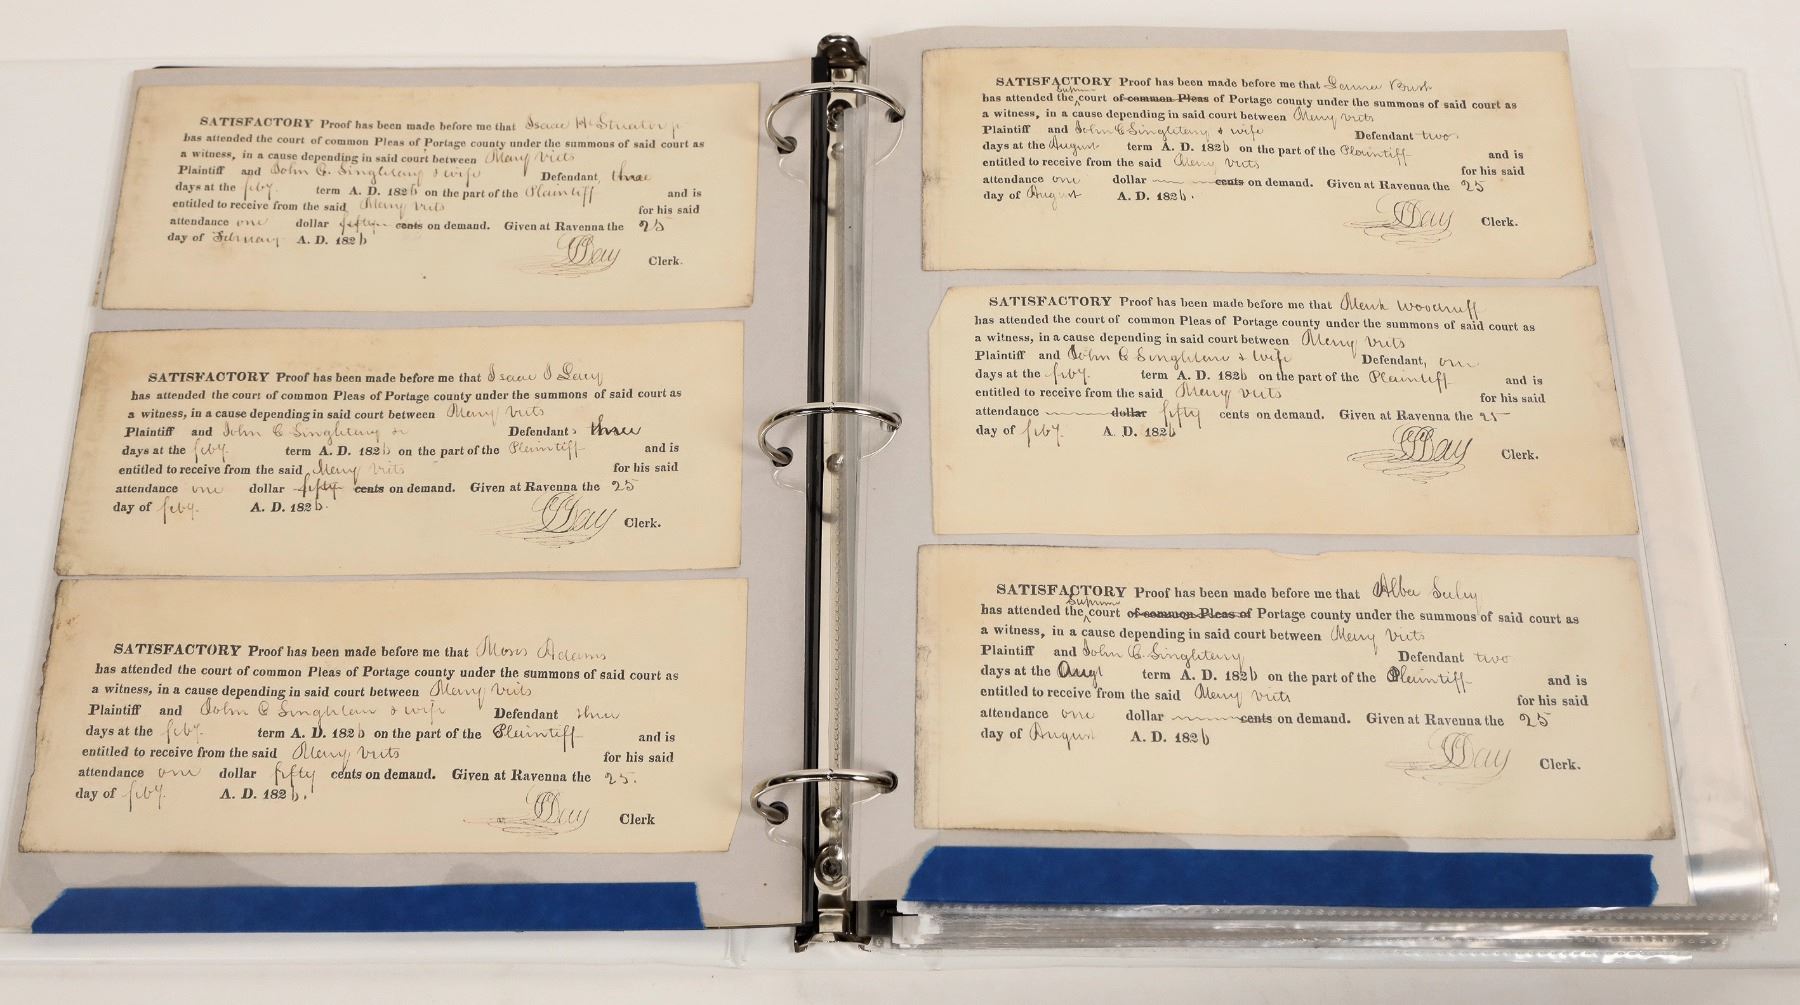 SATISFACTORY Proof has been made before me that Isaac H Streator jr
has attended the court of common Pleas of Portage county under the summons of said court as
a witness, in a cause depending in said court between Meny Virts
Plaintiff and John C. Singletary & wife Defendant, three
days at the feby. term A. D. 1826 on the part of the Plaintiff and is
entitled to receive from the said Meny Virts for his said
attendance one dollar fifty cents on demand. Given at Ravenna the 25
day of February A. D. 1826
Day Clerk.
SATISFACTORY Proof has been made before me that Isaac J Lacy
has attended the court of common Pleas of Portage county under the summons of said court as
a witness, in a cause depending in said court between Meny Virts
Plaintiff and John C Singletary Defendant three
days at the feby. term A. D. 1826 on the part of the Plaintiff and is
entitled to receive from the said Meny Virts for his said
attendance one dollar fifty cents on demand. Given at Ravenna the 25
day of feby. A. D. 1826.
Day Clerk.
SATISFACTORY Proof has been made before me that Moses Adams
has attended the court of common Pleas of Portage county under the summons of said court as
a witness, in a cause depending in said court between Meny Virts
Plaintiff and John C Singletary & wife Defendant three
days at the feby. term A. D. 1826 on the part of the Plaintiff and is
entitled to receive from the said Meny Virts for his said
attendance one dollar fifty cents on demand. Given at Ravenna the 25.
day of feby. A. D. 1826.
Day Clerk
SATISFACTORY Proof has been made before me that Brush
has attended the supreme court of common Pleas of Portage county under the summons of said court as
a witness, in a cause depending in said court between Meny Virts
Plaintiff and John C Singletary & wife Defendant two
days at the August term A. D. 1826 on the part of the Plaintiff and is
entitled to receive from the said Meny Virts for his said
attendance one dollar cents on demand. Given at Ravenna the 25
day of August A. D. 1826.
Day Clerk.
SATISFACTORY Proof has been made before me that Mark Woodruff
has attended the court of common Pleas of Portage county under the summons of said court as
a witness, in a cause depending in said court between Meny Virts
Plaintiff and John C Singletary & wife Defendant, one
days at the feby. term A. D. 1826 on the part of the Plaintiff and is
entitled to receive from the said Meny Virts for his said
attendance dollar fifty cents on demand. Given at Ravenna the 25
day of feby. A. D. 1826
Day Clerk.
SATISFACTORY Proof has been made before me that Alba Seeley
has attended the Supreme court of common Pleas of Portage county under the summons of said court as
a witness, in a cause depending in said court between Meny Virts
Plaintiff and John C. Singletary Defendant two
days at the Augt term A. D. 1826 on the part of the Plaintiff and is
entitled to receive from the said Meny Virts for his said
attendance one dollar cents on demand. Given at Ravenna the 25
day of August A. D. 1826
Day Clerk.